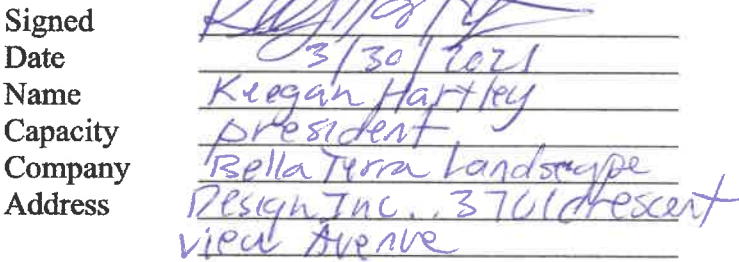 Signed
Date 3/30/2021
Name Keegan Hartley
Capacity president
Company Bella Terra Landscape
Address Design Inc.. 3701 crescent
view Avenue